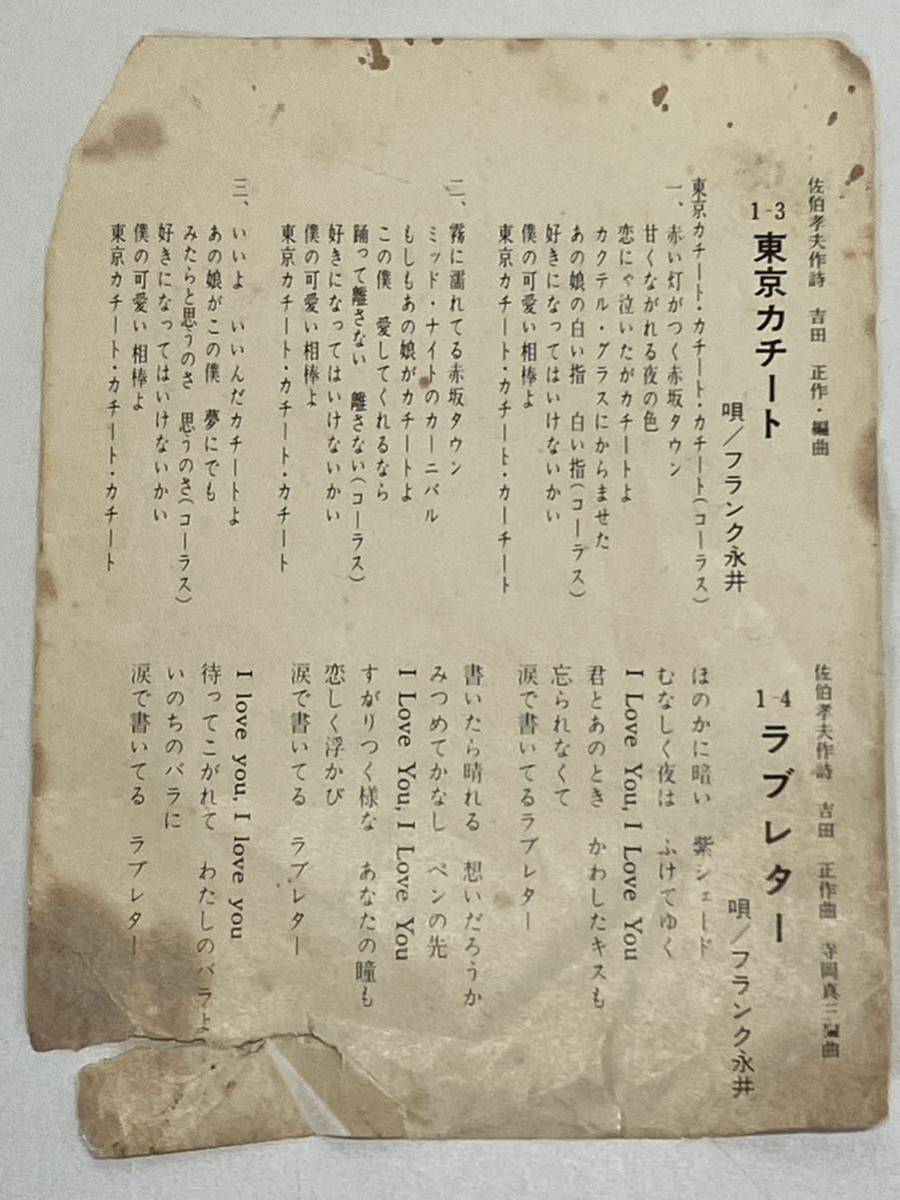 佐伯孝夫作詩　吉田　正作・編曲
1-3 東京カチート
唄／フランク永井
東京カチート・カチート・カチート(コーラス)
一、赤い灯がつく赤坂タウン
甘くながれる夜の色
恋にゃ泣いたがカチートよ
カクテル・グラスにからませた
あの娘の白い指　白い指(コーラス)
好きになってはいけないかい
僕の可愛い相棒よ
東京カチート・カチート・カーチート
二、霧に濡れてる赤坂タウン
ミッド・ナイトのカーニバル
もしもあの娘がカチートよ
この僕　愛してくれるなら
踊って離さない　離さない(コーラス)
好きになってはいけないかい
僕の可愛い相棒よ
東京カチート・カチート・カチート
三、いいよ　いいんだカチートよ
あの娘がこの僕　夢にでも
みたらと思うのさ　思うのさ(コーラス)
好きになってはいけないかい
僕の可愛い相棒よ
東京カチート・カチート・カチート
佐伯孝夫作詩　吉田　正作曲　寺岡真三編曲
1-4 ラブレター
唄／フランク永井
ほのかに暗い　紫シェード
むなしく夜は　ふけてゆく
I Love You, I Love You
君とあのとき　かわしたキスも
忘られなくて
涙で書いてるラブレター
書いたら晴れる　想いだろうか
みつめてかなし　ペンの先
I Love You, I Love You
すがりつく様な　あなたの瞳も
恋しく浮かび
涙で書いてる　ラブレター
I love you, I love you
待ってこがれて　わたしのバラよ
いのちのバラに
涙で書いてる　ラブレター